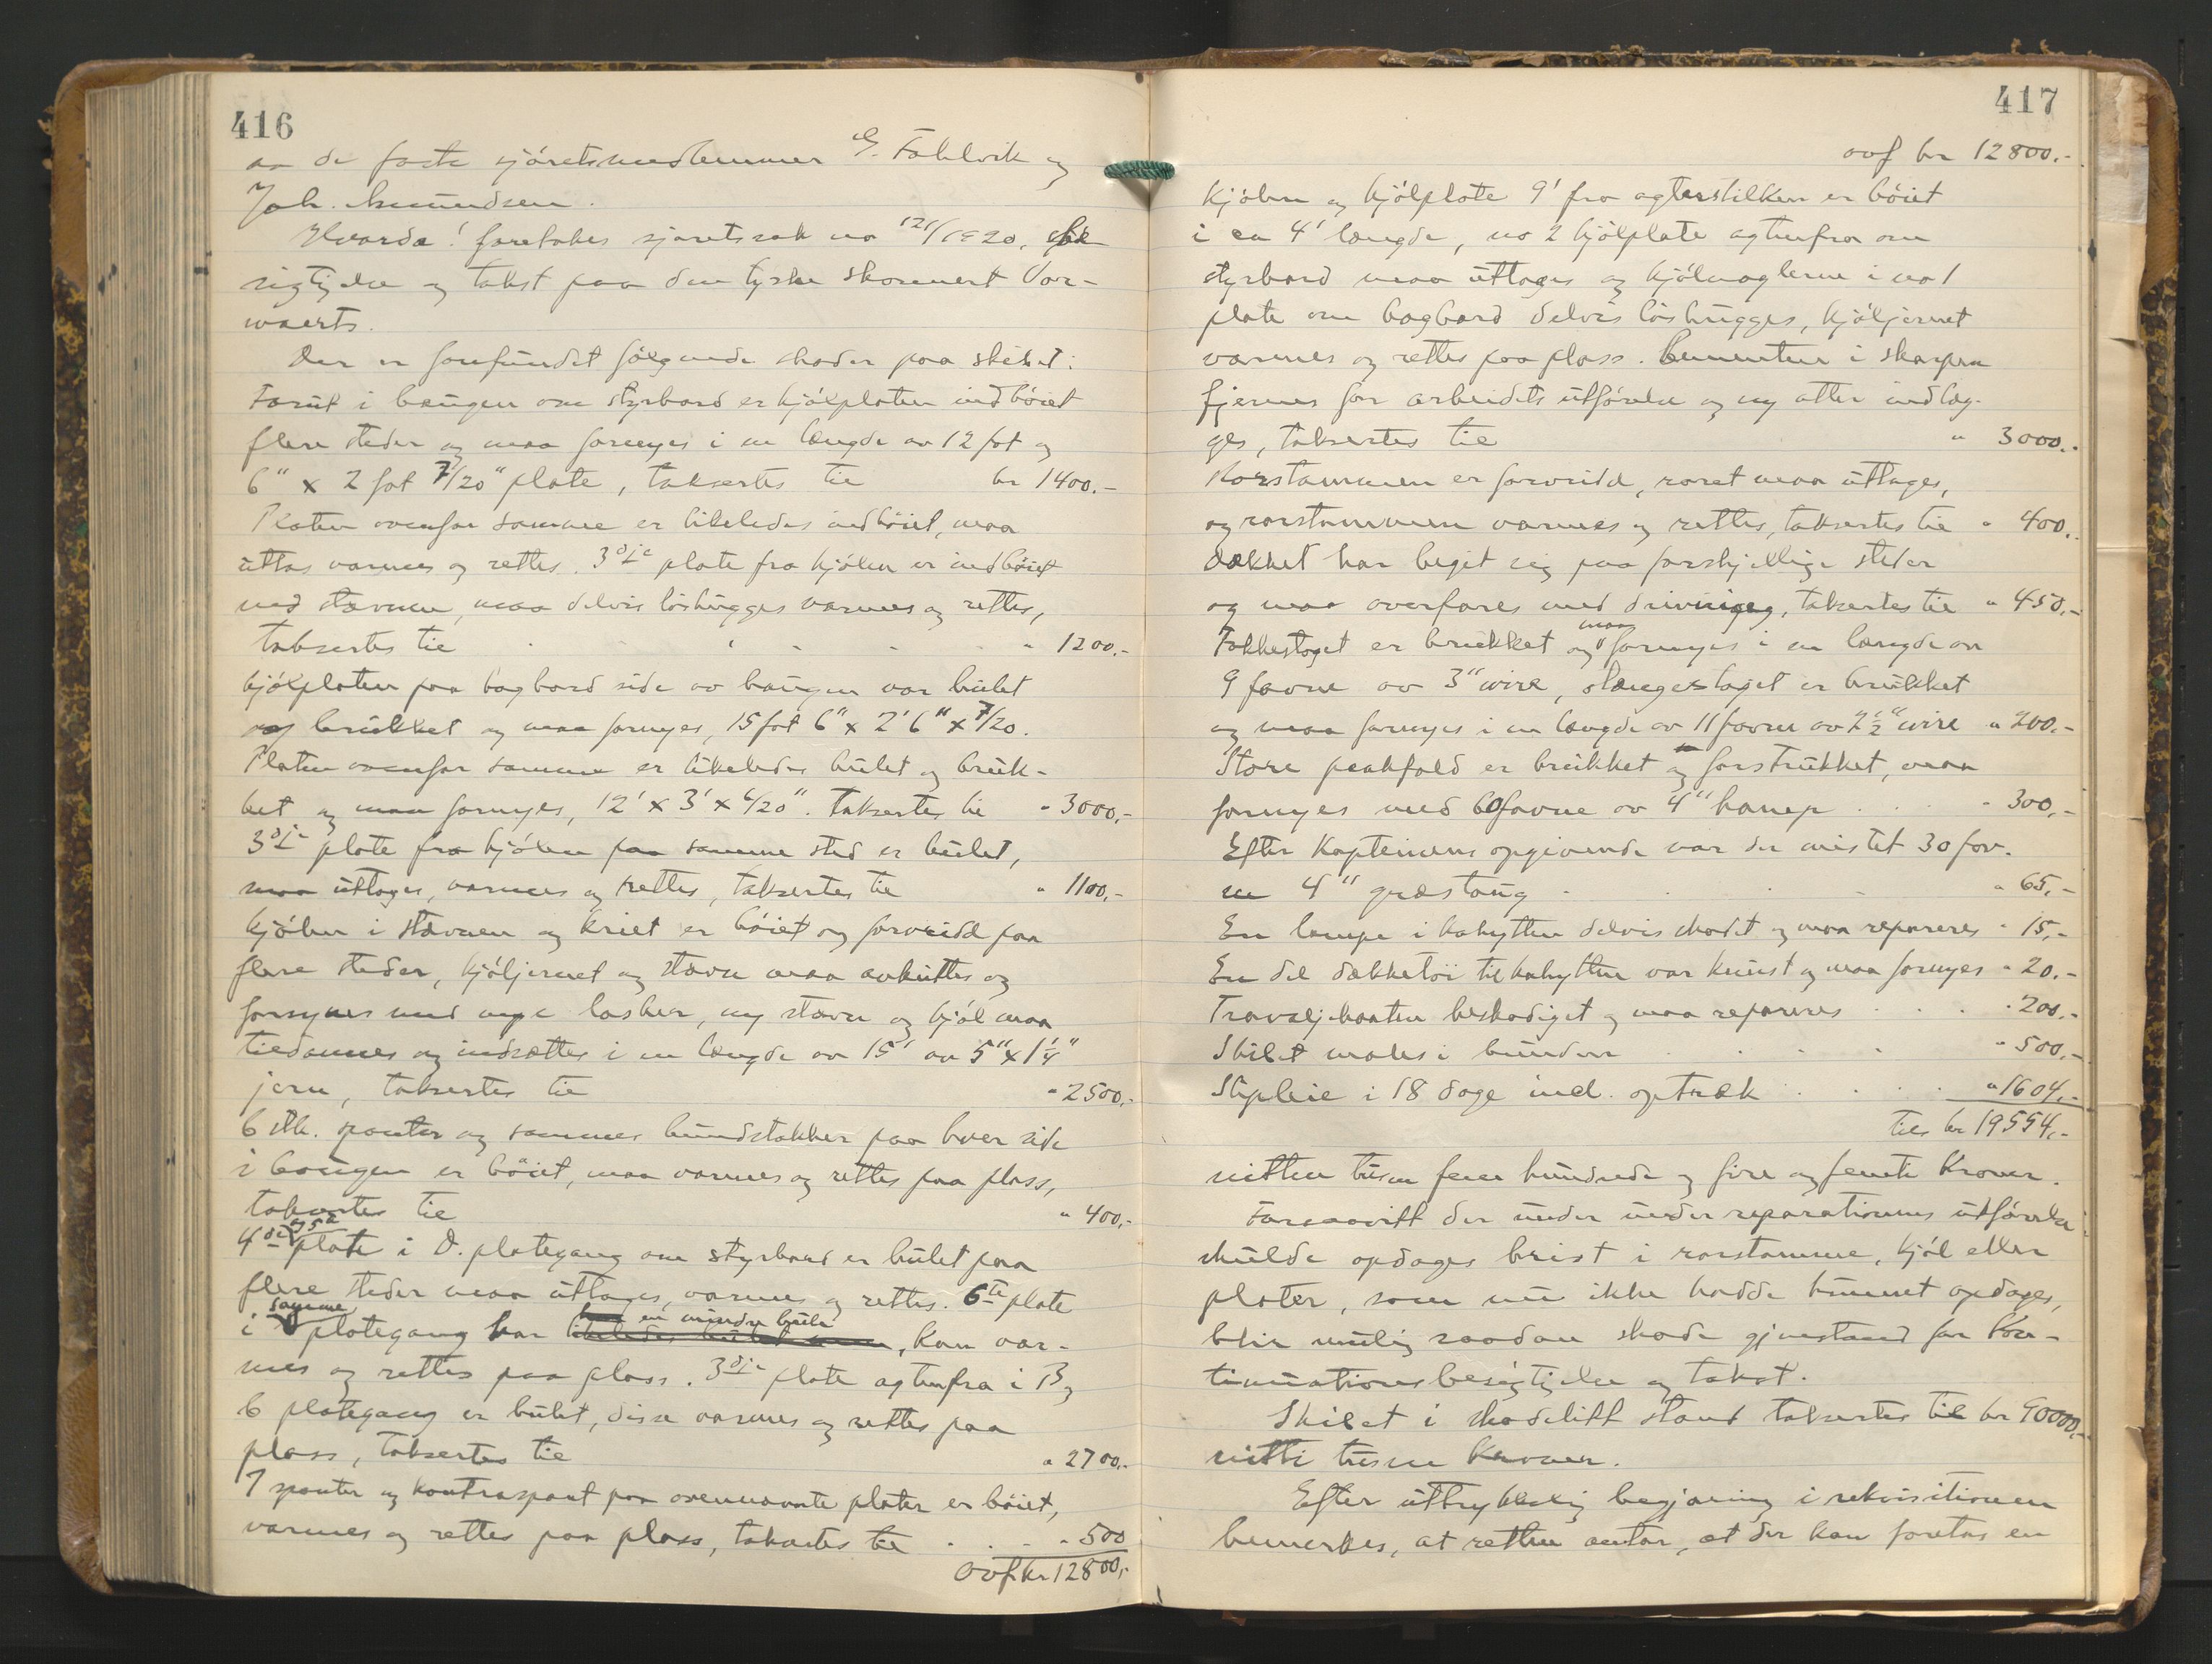 416
av de faste sjöretsmedlemmer G. Fahlvik og
Joh. Amundsen.
Hvorda! foretokes sjöretssak no 121/1920, besik
sigtigelse og takst paa den tyske skonnert Vor-
waerts.
Der er forefundet fölgende skader paa skibet:
Forut i baugen om styrbord er kjölplaten indböiet
flere steder og maa fornyes i en længde av 12 fot og
6" x 2 fot 7/20" plate, taksertes til kr 1400.-
Platen ovenfor samme er likeledes indböiet, maa
uttas varmes og rettes. 3dje plate fra kjölen er indböiet
ved stævnen, maa delvis löshugges varmes og rettes,
taksertes til " 1200.-
Kjölplaten paa bagbord side av baugen var bulet
og brukket og maa fornyes, 15 fot 6" x 2' 6" x 7/20.
Platen ovenfor samme er likeledes bulet og bruk-
ket og maa fornyes, 12' x 3' x 6/20". Taksertes til " 3000,-
3dje plate fra kjölen paa samme sted er bulet,
maa uttages, varmes og rettes, taksertes til " 1100,-
Kjölen i stævnen og kniet er böiet og forvridd paa
flere steder, kjöljernet og stævn maa avkuttes og
forsynes med nye lasker, ny stævn og kjöl maa
tildannes og indsættes i en længde av 15' av 5" x 1¼"
jern, taksertes til " 2500,-
6 stk. spanter og sammes bundstokker paa hver side
i baugen er böiet, maa varmes og rettes paa plass,
taksertes til " 400,-
4de og 5te plate i D. plategang om styrbord er bulet paa
flere steder maa uttages, varmes og rettes. 6te plate
i samme plategang har en mindre bule, kan var-
mes og rettes paa plass. 3dje plate agtenfra i B og
6 plategang er bulet, disse varmes og rettes paa
plass, taksertes til " 2700.-
7 spanter og kontraspant paa ovennævnte plater er böiet,
varmes og rettes paa plass, taksertes til " 500
Ovf. kr 12800,-
417
ovf kr 12800.-
Kjölen og kjölplate 9' fra agterstilken er böiet
i en 4' længde, no 2 kjölplate agtenfra om
styrbord maa uttages og kjölnaglerne i no 1
plate om bagbord delvis löshugges, kjöljernet
varmes og rettes paa plass. Cementen i skarpen
fjernes för arbeidets utförelse og ny atter indlæg-
ges, taksertes til " 3000.-
Rorstammen er forvridd, roret maa uttages,
og rorstammen varmes og rettes, taksertes til " 400.
Dækket har beget sig paa forskjellige steder
og maa overfares med drivning, taksertes til " 450,-
Fokkestaget er brukket og maa fornyes i en længde av
9 favne av 3" wire, stængestaget er brukket
og maa fornyes i en længde av 11 favne av 2½" wire " 200.-
Store peakfald er brukket og forstrukket, maa
fornyes med 60 favne av 4" hamp " 300,-
Efter Kapteinens opgivende var der mistet 30 fav-
ne 4" græstaug " 65,-
En lampe i kahytten delvis skadet og maa repareres " 15,-
En del dækketöi til kahytten var knust og maa fornyes " 20.-
Travaljebaaten beskadiget og maa repareres " 200.-
Skibet males i bunden " 500,-
Slipleie i 18 dage incl. optræk " 1604,-
Tils kr 19554,-
nitten tusen fem hundrede og fire og femti Kroner.
Forsaavitt der under under reparationens utförelse
skulde opdages brist i rorstamme, kjöl eller
plater, som nu ikke hadde kunnet opdages,
blir mulig saadan skade gjenstand for Kon-
tinuationsbesigtigelse og takst.
Skibet i skadelitt stand taksertes til kr 90000,-
nitti tusen Kroner.
Efter uttrykkelig begjæring i rekvisitionen
bemerkes, at retten antar, at der kan foretas en